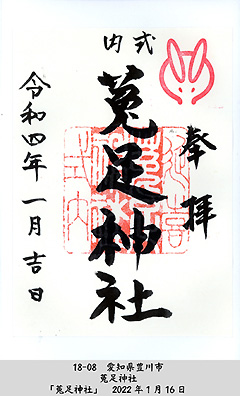 奉拝
式内
菟足神社
令和四年一月吉日
18-08 愛知県豊川市
菟足神社
「菟足神社」 2022年1月16日